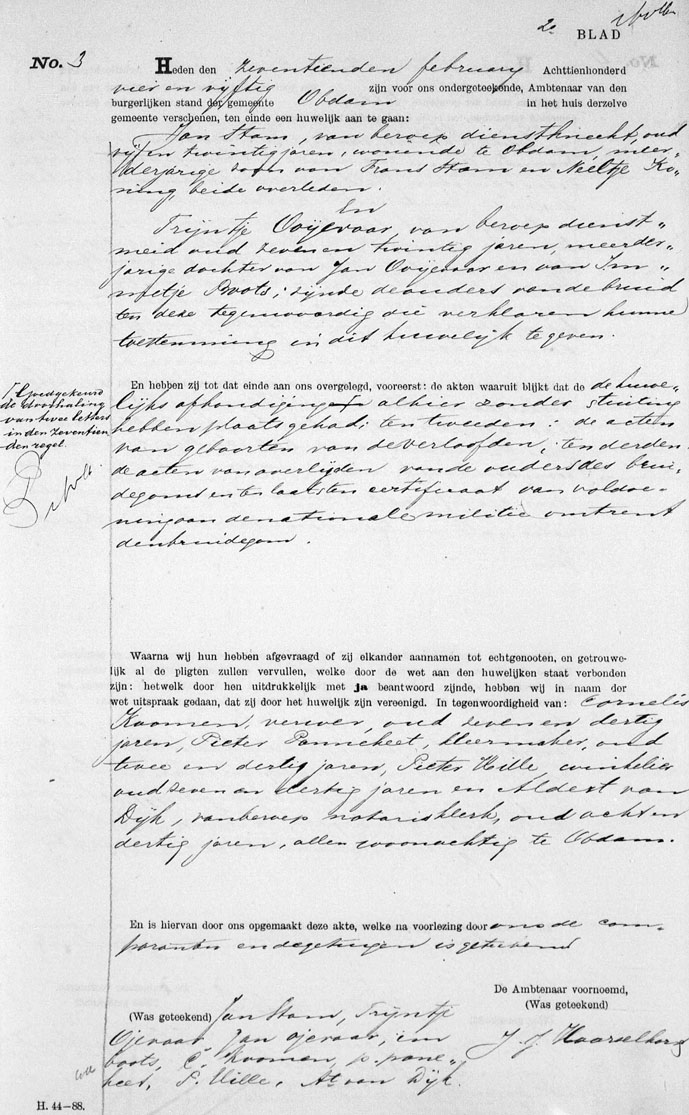 2e BLAD
No. 3 Heden den zeventienden february Achttienhonderd
vier en vijftig zijn voor ons ondergeteekende, Ambtenaar van den
burgerlijken stand der gemeente Obdam in het huis derzelve
gemeente verschenen, ten einde een huwelijk aan te gaan:
Jan Stam, van beroep dienstknecht, oud
vijf en twintig jaren, wonende te Obdam, meer„
derjarige zoon van Frans Stam en Neeltje Ko„
ning, beide overleden.
En
Trijntje Ooijevaar, van beroep dienst„
meid oud zeven en twintig jaren, meerder„
jarige dochter van Jan Ooijevaar en van Im„
metje Boots; zijnde de ouders van de bruid
ten deze tegenwoordig die verklaren hunne
toestemming in dit huwelijk te geven.
En hebben zij tot dat einde aan ons overgelegd, vooreerst: de akten waaruit blijkt dat de de huwe„
lijks afkondigingen alhier zonder stuiting
hebben plaats gehad; ten tweeden: de acten
van geboorten van de verloofden; ten derden
de acten van overlijden van de ouders des brui„
degoms en ten laatsten certificaat van voldoe„
ning aan de nationale militie omtrent
den bruidegom.
Goedgekeurd
de doorhaling
van twee letters
in den zeventien
den regel.
Waarna wij hun hebben afgevraagd of zij elkander aannamen tot echtgenooten, en getrouwe-
lijk al de pligten zullen vervullen, welke door de wet aan den huwelijken staat verbonden
zijn: hetwelk door hen uitdrukkelijk met ja beantwoord zijnde, hebben wij in naam der
wet uitspraak gedaan, dat zij door het huwelijk zijn vereenigd. In tegenwoordigheid van: Cornelis
Koomen, verwer, oud zeven en dertig
jaren, Pieter Pannekeet, kleermaker, oud
twee en dertig jaren, Pieter Wille, winkelier
oud zeven en dertig jaren en Aldert van
Dijk, van beroep notarisklerk, oud acht en
dertig jaren, allen woonachtig te Obdam.
En is hiervan door ons opgemaakt deze akte, welke na voorlezing door ons de com„
paranten en de getuigen is geteekend
De Ambtenaar voornoemd,
(Was geteekend)
(Was geteekend) Jan Stam, Trijntje
Ojevaar, Jan ojevaar, im
boots, C. Koomen, p. pane„
keet, P. Wille, At van Dijk.
H. 44—88.